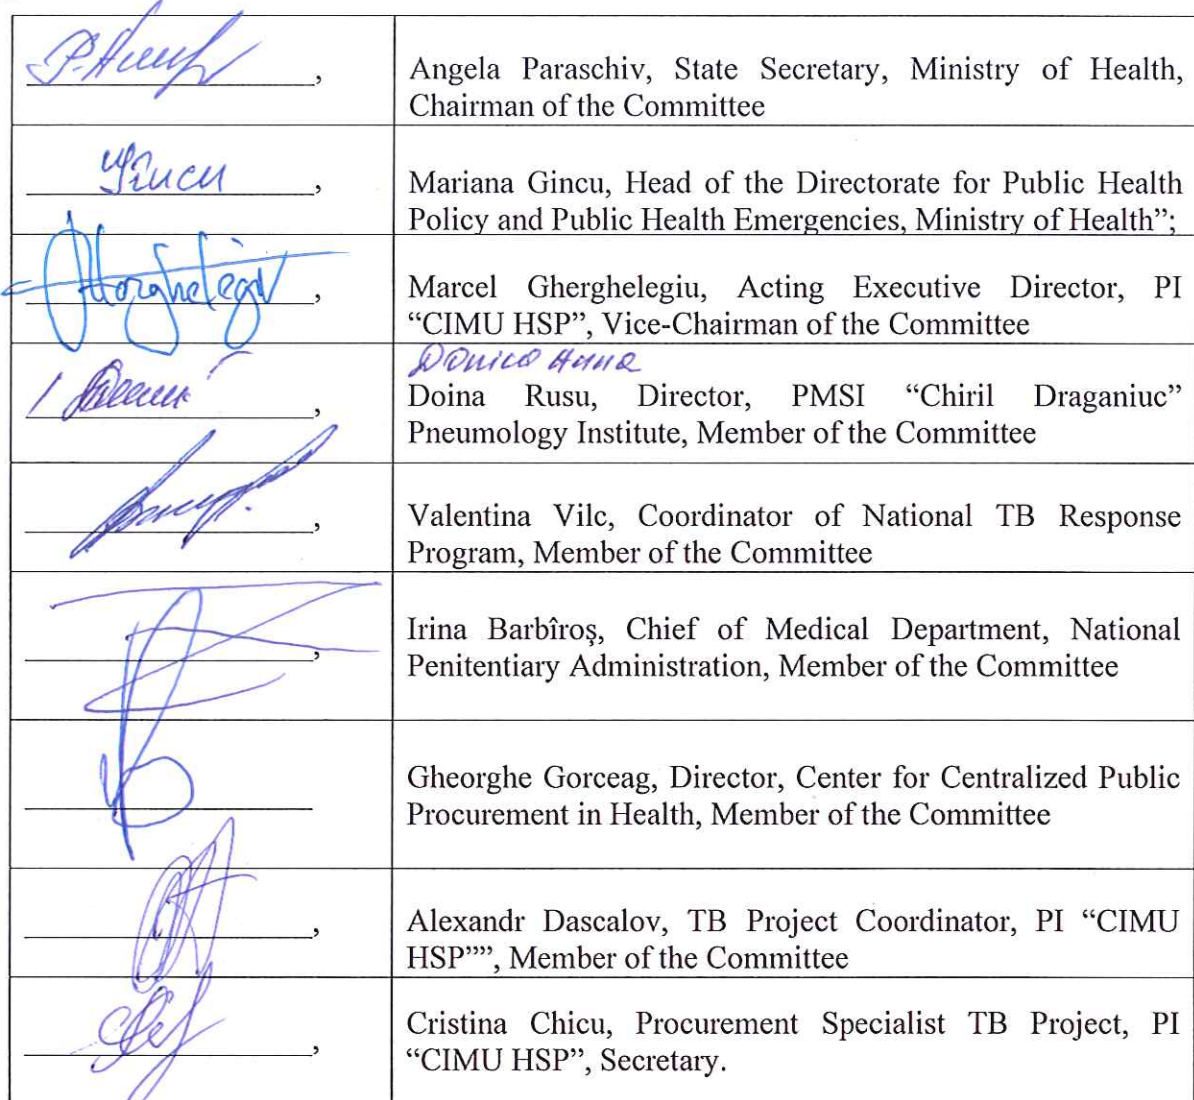 Angela Paraschiv, State Secretary, Ministry of Health,
Chairman of the Committee
Gîncu
Mariana Gincu, Head of the Directorate for Public Health
Policy and Public Health Emergencies, Ministry of Health”;
Marcel Gherghelegiu, Acting Executive Director, PI
“CIMU HSP”, Vice-Chairman of the Committee
Donica Anna
Doina Rusu, Director, PMSI “Chiril Draganiuc”
Pneumology Institute, Member of the Committee
Valentina Vilc, Coordinator of National TB Response
Program, Member of the Committee
Irina Barbîroş, Chief of Medical Department, National
Penitentiary Administration, Member of the Committee
Gheorghe Gorceag, Director, Center for Centralized Public
Procurement in Health, Member of the Committee
Alexandr Dascalov, TB Project Coordinator, PI “CIMU
HSP””, Member of the Committee
Cristina Chicu, Procurement Specialist TB Project, PI
“CIMU HSP”, Secretary.